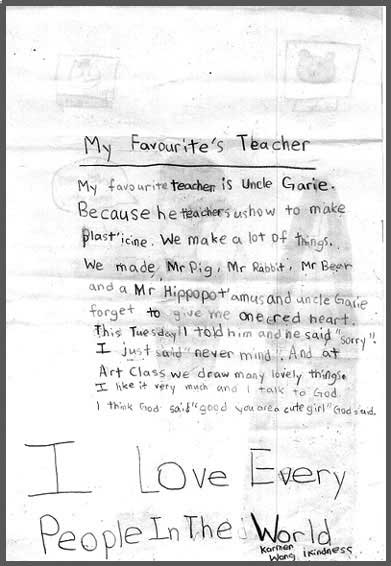 My Favourite's Teacher
My favourite teacher is Uncle Garie.
Because he teachers us how to make
plast'icine. We make a lot of things.
We made, Mr Pig, Mr Rabbit, Mr Bear
and a Mr Hippopot'amus and uncle Garie
forget to give me one red heart.
This Tuesday I told him and he said "sorry".
I just said "never mind". And at
Art Class we draw many lovely things.
I like it very much and I talk to God
I think God said "good you are a cute girl" God said.
I Love Every
People In The World
Karmen
Wong 1 Kindness